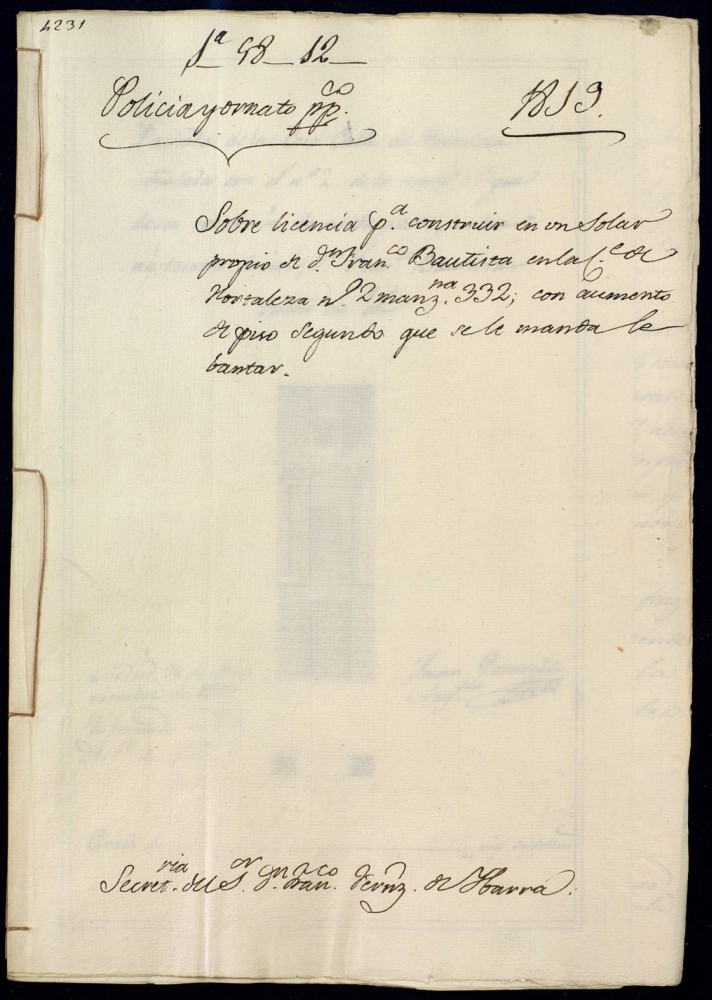 4231
1ª 48_12_
Policia y ornato ppco.
1819.
Sobre licencia pª. construir en un Solar
propio de dn. Franco. Bautista en la Ce. de
Hortaleza nº. 2 manzna. 332; con aumento
de piso Segundo que se le manda le
bantar.
Secretria. del Sor. dn. Franco. Fernz. de Ibarra.